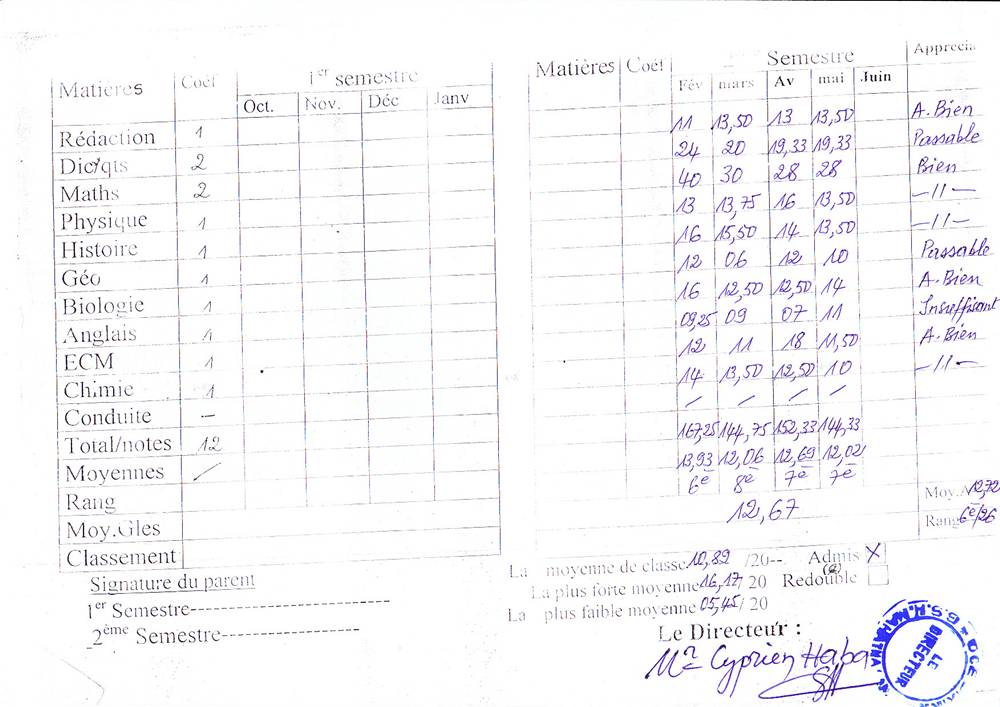 Matières Coef 1er semestre
Oct. Nov. Déc Janv
Rédaction 1
Dic/qts 2
Maths 2
Physique 1
Histoire 1
Géo 1
Biologie 1
Anglais 1
ECM 1
Chimie 1
Conduite –
Total/notes 12
Moyennes /
Rang
Moy.Gles
Classement
Signature du parent
1er Semestre------------------------
2ème Semestre-----------------
Matières Coef Semestre Apprecia
Fév mars Av mai Juin
11 13,50 13 13,50 A.Bien
24 20 19,33 19,33 Passable
40 30 28 28 Bien
13 13,75 16 13,50 –//–
16 15,50 14 13,50 –//–
12 06 12 10 Passable
16 12,50 12,50 14 A.Bien
09,25 09 07 11 Insuffisant
12 11 18 11,50 A.Bien
14 13,50 12,50 10 –//–
/ / / /
167,25 144,75 152,33 144,33
13,93 12,06 12,69 12,02
6e 8e 7e 7e
12,67
Moy.A 12,72
Rang 6e/26
La moyenne de classe 10,89 /20--. Admis X
(e)
La plus forte moyenne 16,17/ 20 Redouble
La plus faible moyenne 05,45/ 20
Le Directeur :
Mr Cyprien Haba
LE DIRECTEUR